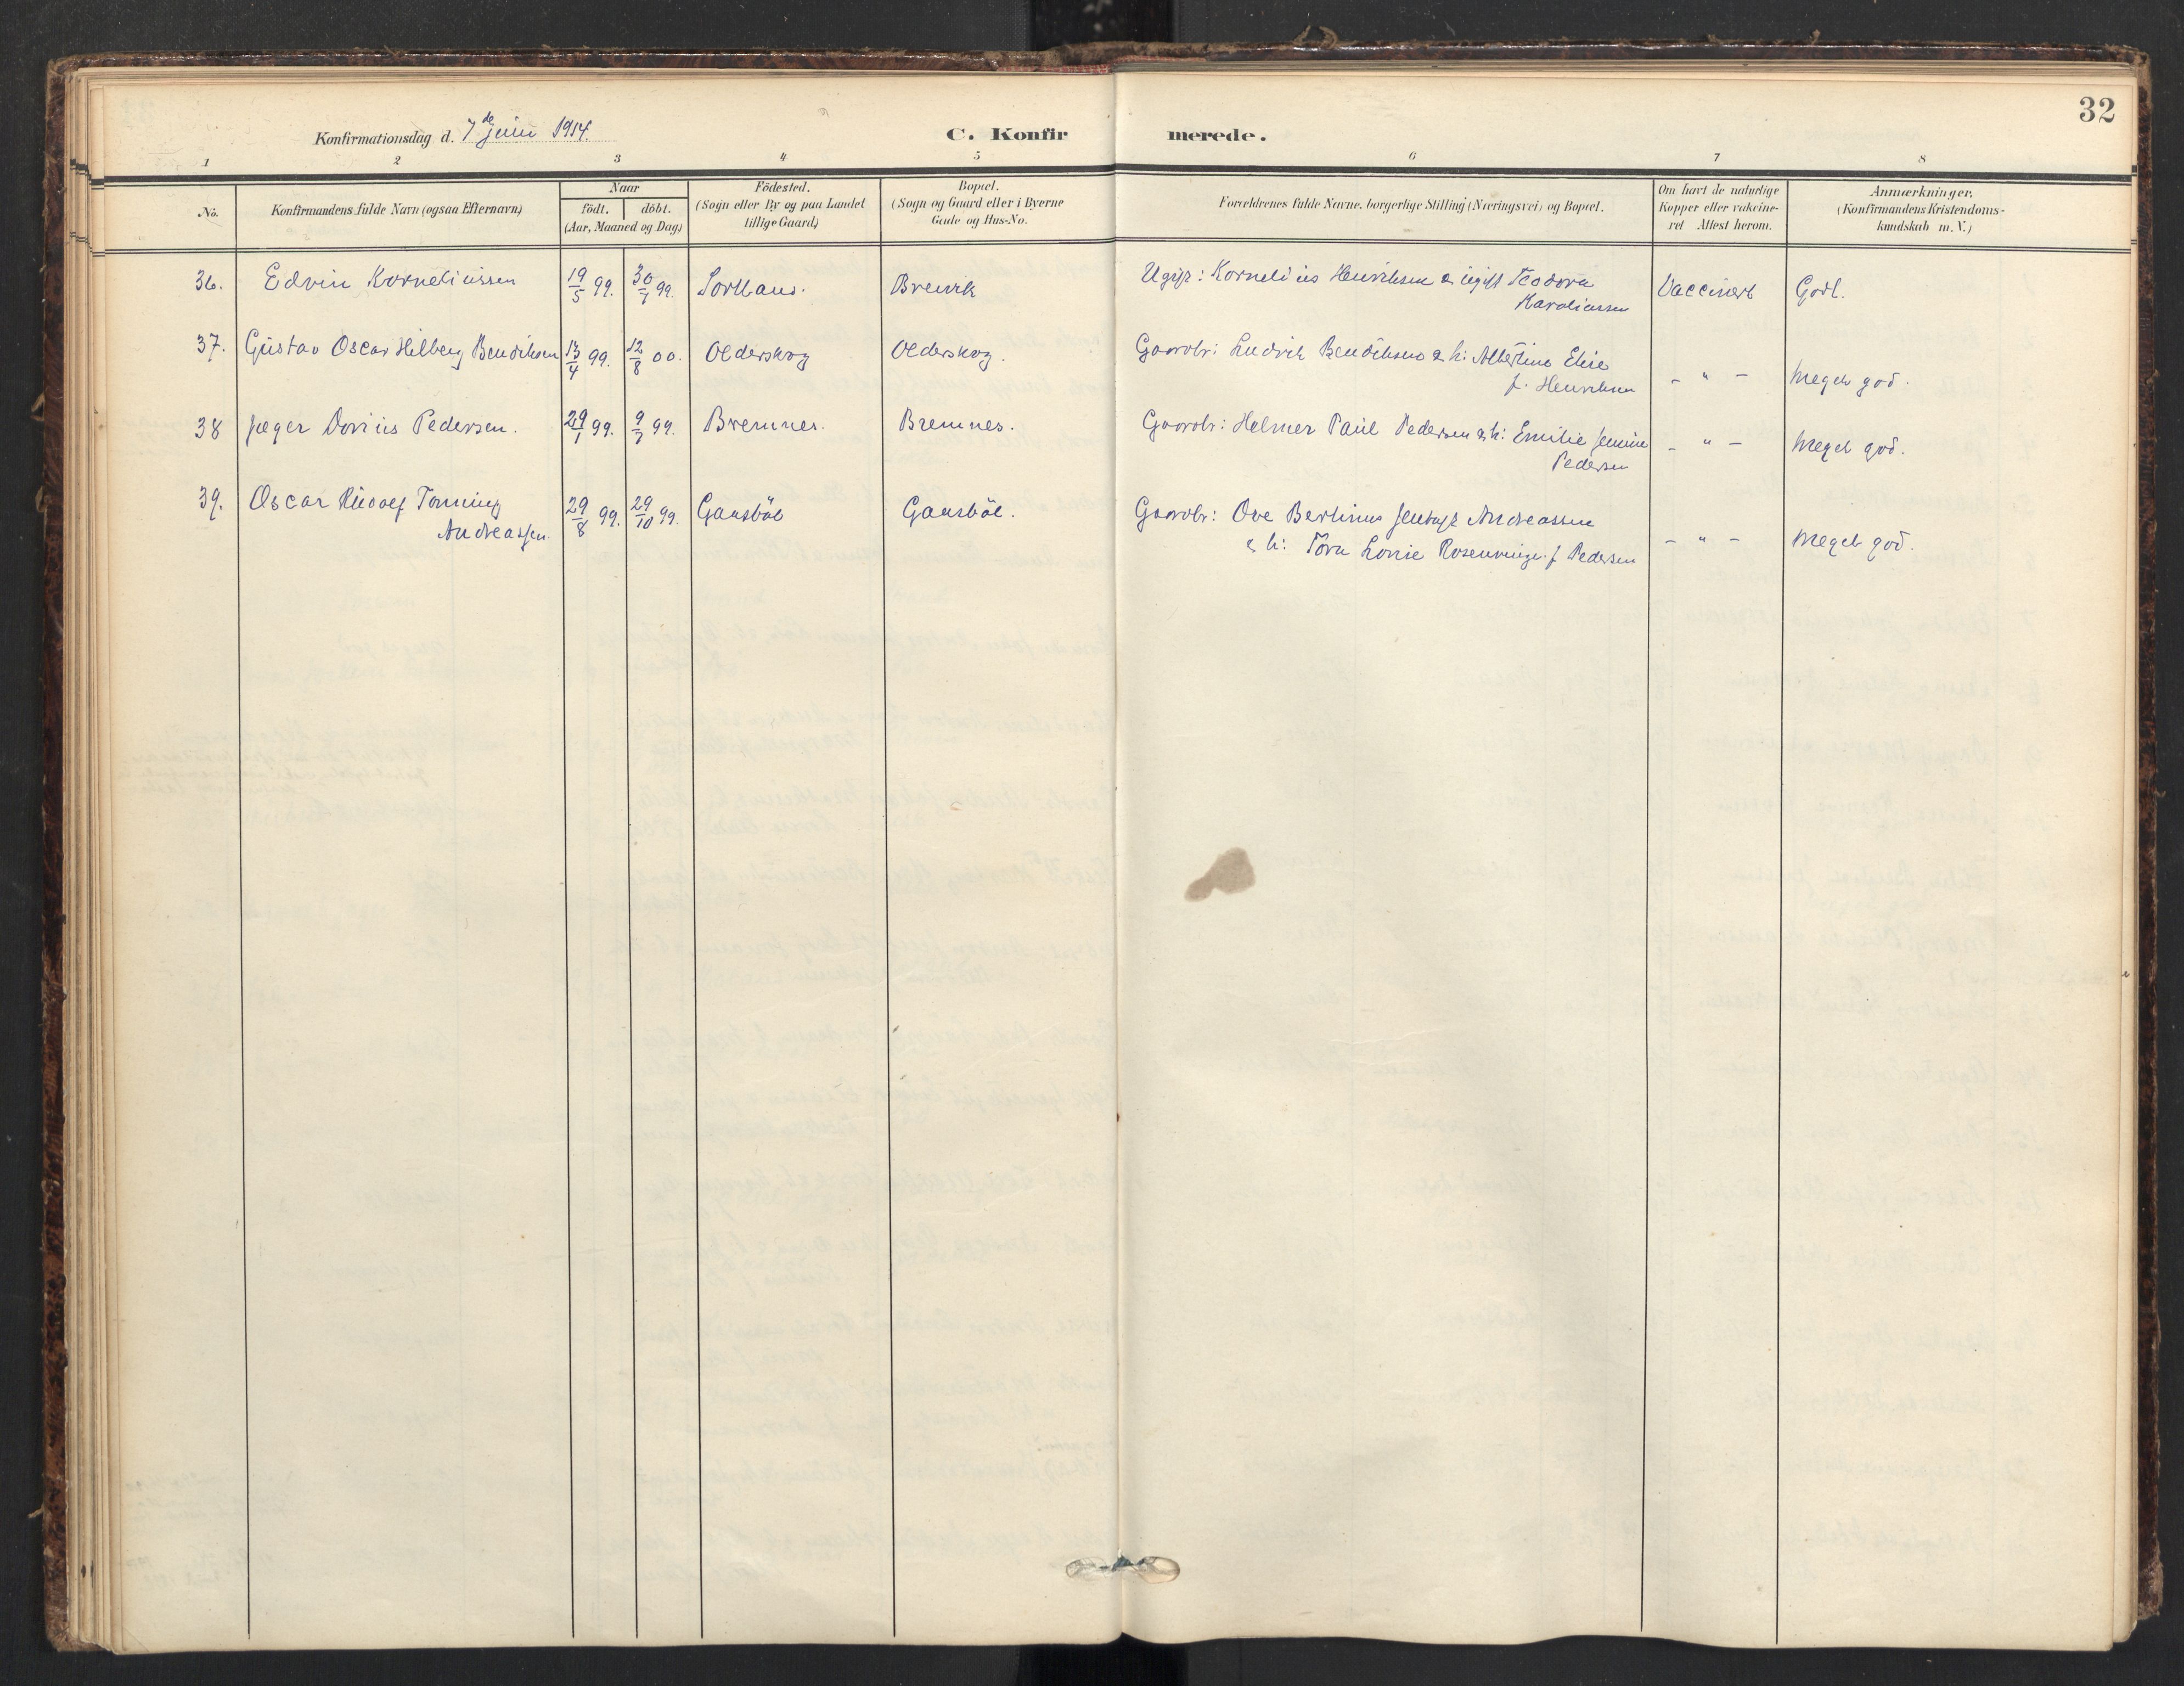 32
Konfirmationsdag d. 7de juni 1914.
C. Konfirmerede.
1 2 3 4 5 6 7 8
No.
Konfirmandens fulde Navn (ogsaa Efternavn)
Naar
født. døbt.
(Aar, Maaned og Dag)
Fødested.
(Sogn eller By og paa Landet
tillige Gaard)
Bopæl.
(Sogn og Gaard eller i Byerne
Gade og Hus-No.
Forældrenes fulde Navne, borgerlige Stilling (Næringsvei) og Bopæl.
Om havt de naturlige
Kopper eller vakcine-
ret Attest herom.
Anmærkninger.
(Konfirmandens Kristendoms-
kundskab m. V.)
36. Edvin Korneliussen 19/5 99. 30/7 99. Sortland. Brenvik Ugift: Kornelius Henriksen & ugift Teodora
Karoliussen Vaccinert Godt.
37. Gustav Oscar Hilberg Bendiksen 13/4 99. 12/8 00. Olderskog Olderskog. Gaardbr: Ludvik Bendiksen & h: Albertine Elise
f. Henriksen - " - Meget god.
38 Jeger Dorius Pedersen. 29/1 99. 9/7 99. Bremnes. Bremnes. Gaardbr: Helmer Paul Pedersen & h: Emilie Jemine
Pedersen - " - Meget god.
39. Oscar Rudolf Tonning
Andreassen. 29/8 99. 29/10 99. Gausbøl Gausbøl. Gaardbr: Ove Bertinus Jentoft Andreassen
& h: Tora Lovise Rosenvinge f Pedersen - " - Meget god.